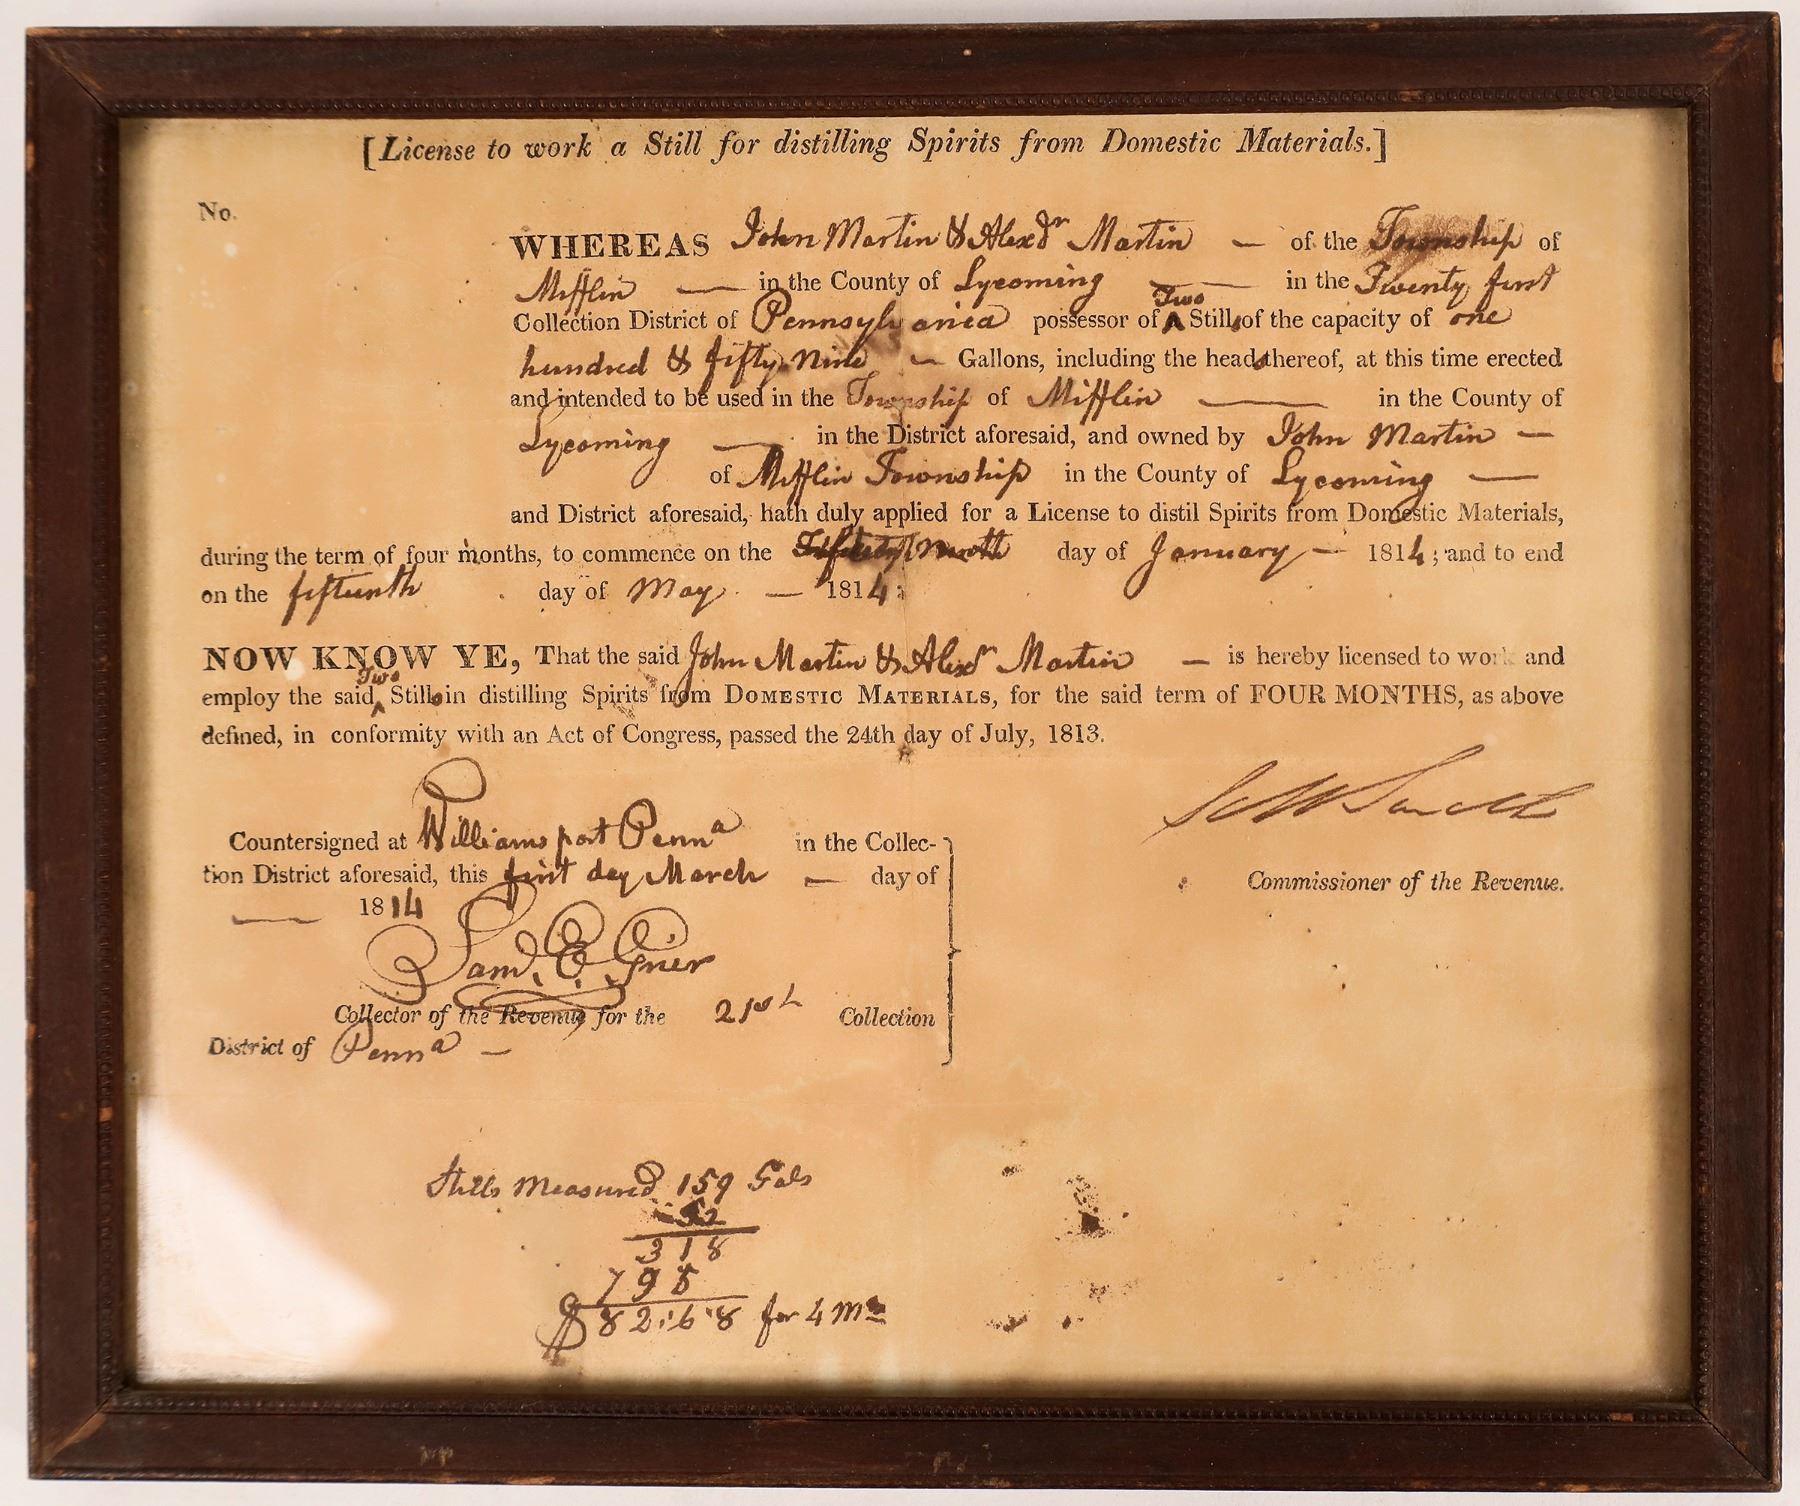 [License to work a Still for distilling Spirits from Domestic Materials.]
No.
WHEREAS John Martin & Alexdr Martin — of the Township of
Mifflin — in the County of Lycoming — in the Twenty first
Two
Collection District of Pennsylvania possessor of ^ Stills of the capacity of one
hundred & fifty nine — Gallons, including the heads thereof, at this time erected
and intended to be used in the Township of Mifflin — in the County of
Lycoming — in the District aforesaid, and owned by John Martin —
of Mifflin Township in the County of Lycoming —
and District aforesaid, hath duly applied for a License to distil Spirits from Domestic Materials,
during the term of four months, to commence on the day of January — 1814; and to end
on the fifteenth day of May — 1814:
NOW KNOW YE, That the said John Martin & Alexdr Martin — is hereby licensed to work and
Two
employ the said ^ Stills in distilling Spirits from DOMESTIC MATERIALS, for the said term of FOUR MONTHS, as above
defined, in conformity with an Act of Congress, passed the 24th day of July, 1813.
Countersigned at Williamsport Penna in the Collec-
tion District aforesaid, this first day March — day of
— 1814
Saml. E. Grier
Collector of the Revenue for the 21st Collection
District of Penna —
Commissioner of the Revenue.
Stills Measured 159 Gals
52
318
795
$82.68 for 4 Ms